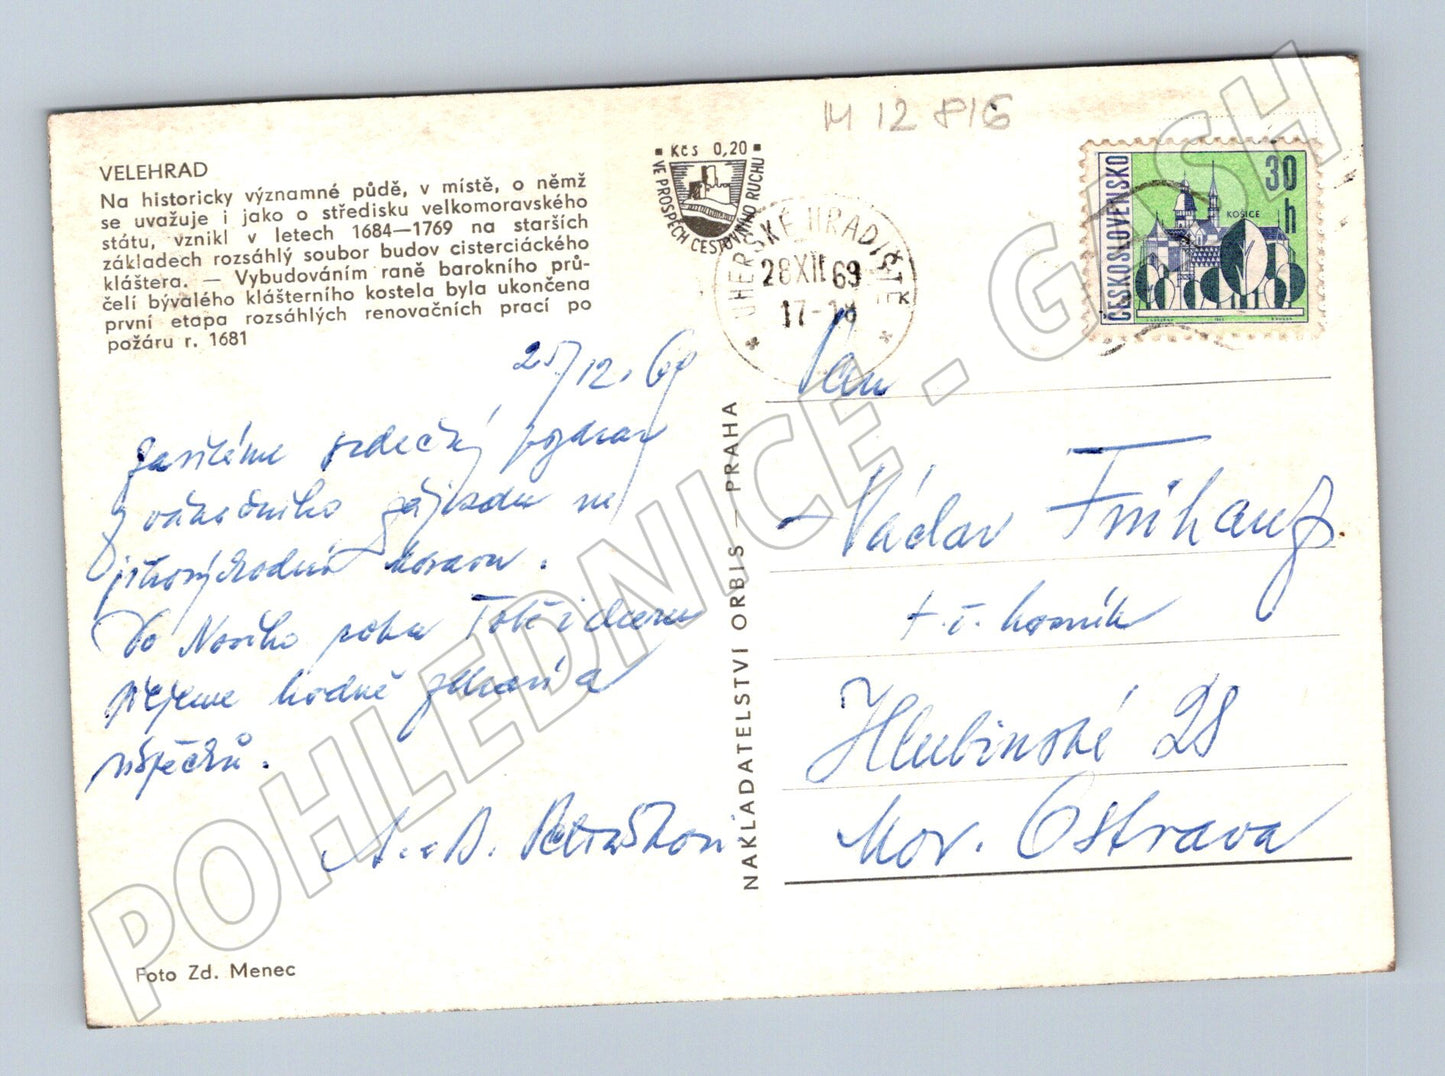 M 12 816
VELEHRAD
Na historicky významné půdě, v místě, o němž
se uvažuje i jako o středisku velkomoravského
státu, vznikl v letech 1684—1769 na starších
základech rozsáhlý soubor budov cisterciáckého
kláštera. — Vybudováním raně barokního prů-
čelí bývalého klášterního kostela byla ukončena
první etapa rozsáhlých renovačních prací po
požáru r. 1681
Kčs 0,20
VE PROSPĚCH CESTOVNÍHO RUCHU
UHERSKÉ HRADIŠTĚ
28XII69
17-18
ČESKOSLOVENSKO
30 h
KOŠICE
25/12. 69
Zasíláme srdečný pozdrav
z vánočního zájezdu na
jihovýchodní Moravu.
Do Nového roku Vám
přejeme hodně zdraví a
úspěchů.
NAKLADATELSTVÍ ORBIS — PRAHA
Pan
Václav Frühauf
t.č. horník
Hlubinské 28
Mor. Ostrava
Foto Zd. Menec
POHLEDNICE - GASH